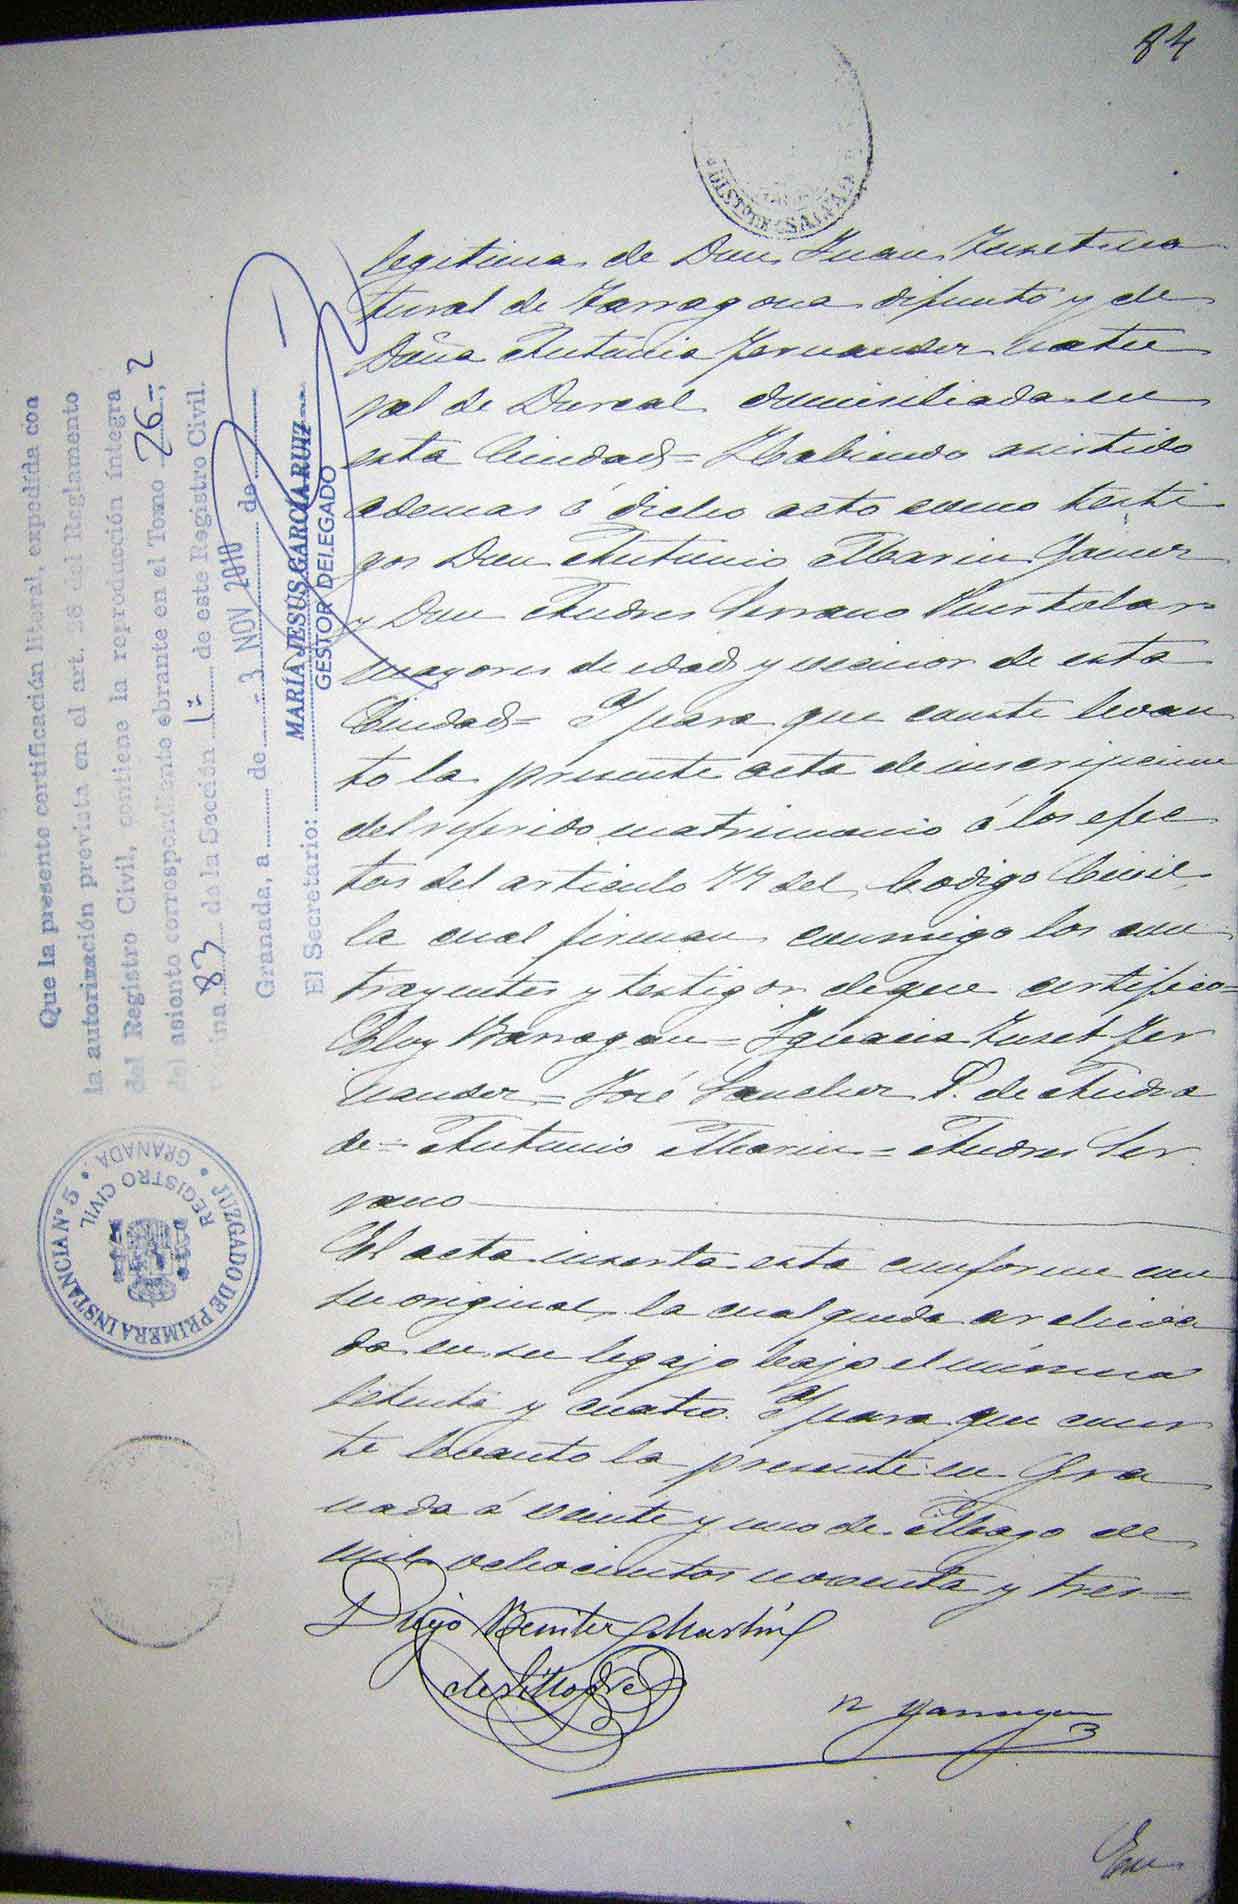 84
DISTTO SALVA
legitima de Don Juan Tuset na
tural de Tarragona difunto y de
Doña Antonia Fernandez natu
ral de Durcal domiciliada en
esta Ciudad = Habiendo asistido
ademas á dicho acto como testi
gos Don Antonio Marin Gomez
y Don Andres Serrano
mayores de edad y vecinos de esta
Ciudad = Y para que conste levan
to la presente acta de inscripcion
del referido matrimonio á los efec
tos del articulo 77 del Codigo Civil,
la cual firman conmigo los con
trayentes y testigos de que certifico =
Eloy Barragan = Ignacia Tuset Fer
nandez = José Sanchez P. de Andra
de = Antonio Marin = Andres Ser
rano
El acta inserta esta conforme con
su original, la cual queda archiva
da en su legajo bajo el número
setenta y cuatro. Y para que cons
te levanto la presente en Gra
nada á veinte y uno de Mayo de
mil ochocientos noventa y tres =
Diego Benitez Martin
de
En
Que la presente certificación literal, expedida con
la autorización prevista en el art. 28 del Reglamento
del Registro Civil, contiene la reproducción íntegra
del asiento correspondiente obrante en el Tomo 26-2
página 83 de la Sección 2ª de este Registro Civil.
Granada, a de - 3 NOV 2010 de
MARÍA JESÚS GARCÍA RUIZ
El Secretario: GESTOR DELEGADO
JUZGADO DE PRIMERA INSTANCIA Nº 5 · GRANADA ·
REGISTRO CIVIL